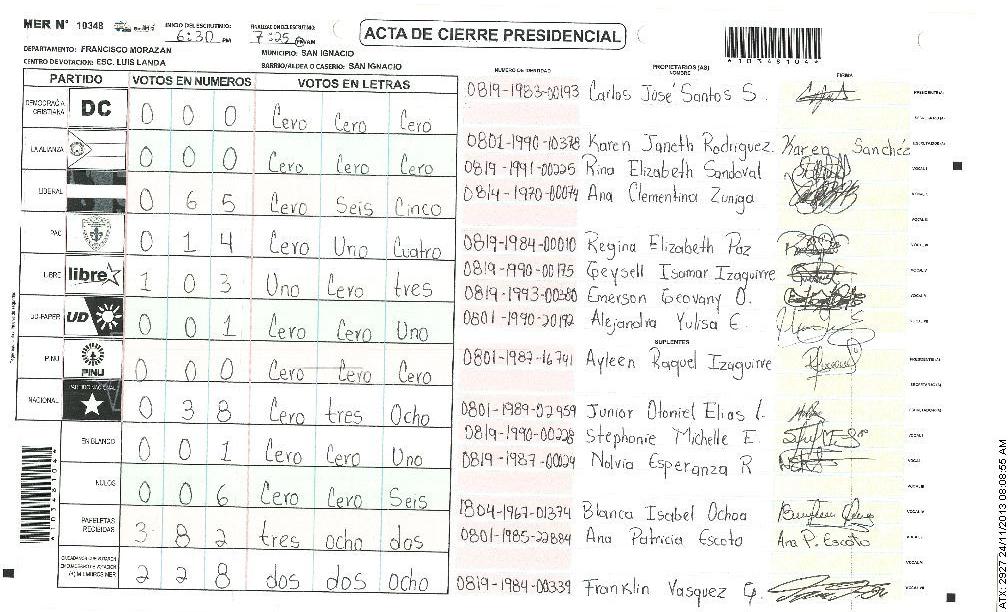 MER N° 10348 INICIO DEL ESCRUTINIO: 6:30 PM FINALIZACION DEL ESCRUTINIO: 7:25 PM/AM
ACTA DE CIERRE PRESIDENCIAL
A10348104
DEPARTAMENTO: FRANCISCO MORAZAN MUNICIPIO: SAN IGNACIO
CENTRO DE VOTACION: ESC. LUIS LANDA BARRIO/ALDEA O CASERIO: SAN IGNACIO
PARTIDO VOTOS EN NUMEROS VOTOS EN LETRAS
DEMOCRACIA CRISTIANA DC 0 0 0 Cero Cero Cero
LA ALIANZA 0 0 0 Cero Cero Cero
LIBERAL 0 6 5 Cero Seis Cinco
PAC 0 1 4 Cero Uno Cuatro
LIBRE libre 1 0 3 Uno Cero tres
UD-FAPER UD 0 0 1 Cero Cero Uno
PINU PINU 0 0 0 Cero Cero Cero
NACIONAL PARTIDO NACIONAL 0 3 8 Cero tres Ocho
EN BLANCO 0 0 1 Cero Cero Uno
NULOS 0 0 6 Cero Cero Seis
PAPELETAS RECIBIDAS 3 8 2 tres ocho dos
2 2 8 dos dos Ocho
NUMERO DE IDENTIDAD PROPIETARIOS (AS) NOMBRE FIRMA
0819-1983-00193 Carlos José Santos S. PRESIDENTE(A)
SECRETARIO(A)
0801-1990-10378 Karen Janeth Rodriguez. Karen Sanchéz ESCRUTADOR(A)
0819-1991-00225 Rina Elizabeth Sandoval VOCAL I
0814-1970-00074 Ana Clementina Zuniga VOCAL II
VOCAL III
0819-1984-00010 Regina Elizabeth Paz VOCAL IV
0819-1990-00175 Geysell Isamar Izaguirre VOCAL V
0819-1993-00380 Emerson Geovany O. VOCAL VI
0801-1990-20192 Alejandra Yulisa E. VOCAL VII
SUPLENTES
0801-1987-16741 Ayleen Raquel Izaguirre PRESIDENTE(A)
SECRETARIO(A)
0801-1989-02959 Junior Otoniel Elias L. ESCRUTADOR(A)
0819-1990-00228 Stephonie Michelle E. VOCAL I
0819-1987-00029 Nolvia Esperanza R VOCAL II
VOCAL III
1804-1967-01374 Blanca Isabel Ochoa VOCAL IV
0801-1985-22884 Ana Patricia Escoto Ana P. Escoto VOCAL V
0819-1984-00339 Franklin Vasquez G. VOCAL VII
A10348104
CATX-2927 24/11/2013 08:08:55 AM